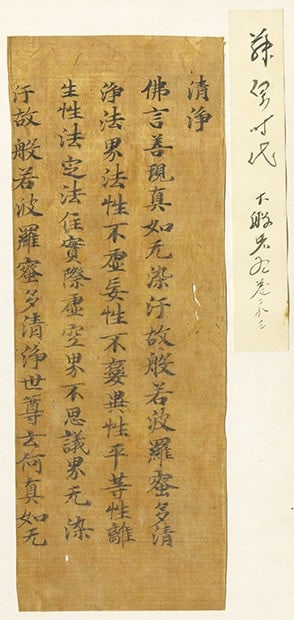 藤原时代 大般若
清淨
佛言善現真如无染汙故般若波羅蜜多清
淨法界法性不虛妄性不變異性平等性離
生性法定法住實際虛空界不思議界无染
汙故般若波羅蜜多清淨世尊云何真如无